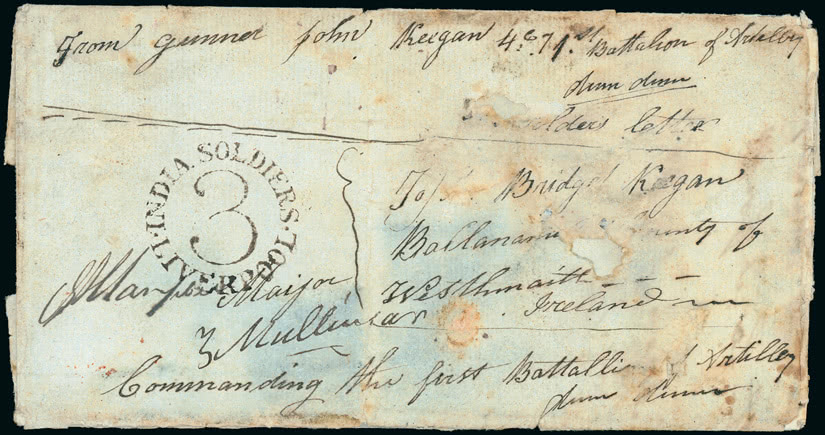 From gunner John Keegan 4.C. 1st Battalion of Artilley
dum dum
letter
INDIA SOLDIERS
3
LIVERPOOL
To Bridget Keegan
County of
Westhmaith
Ireland
Major
3 Mullingar
Commanding the first Battallion of Artilley
dum dum